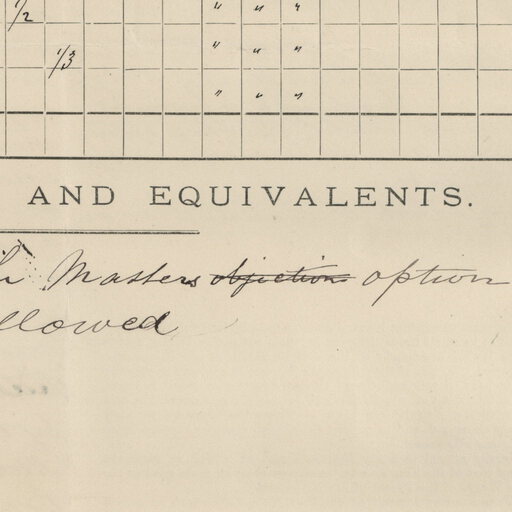 1/2 " " "
1/3 " " "
" " "
AND EQUIVALENTS.
Masters objections option
llowed